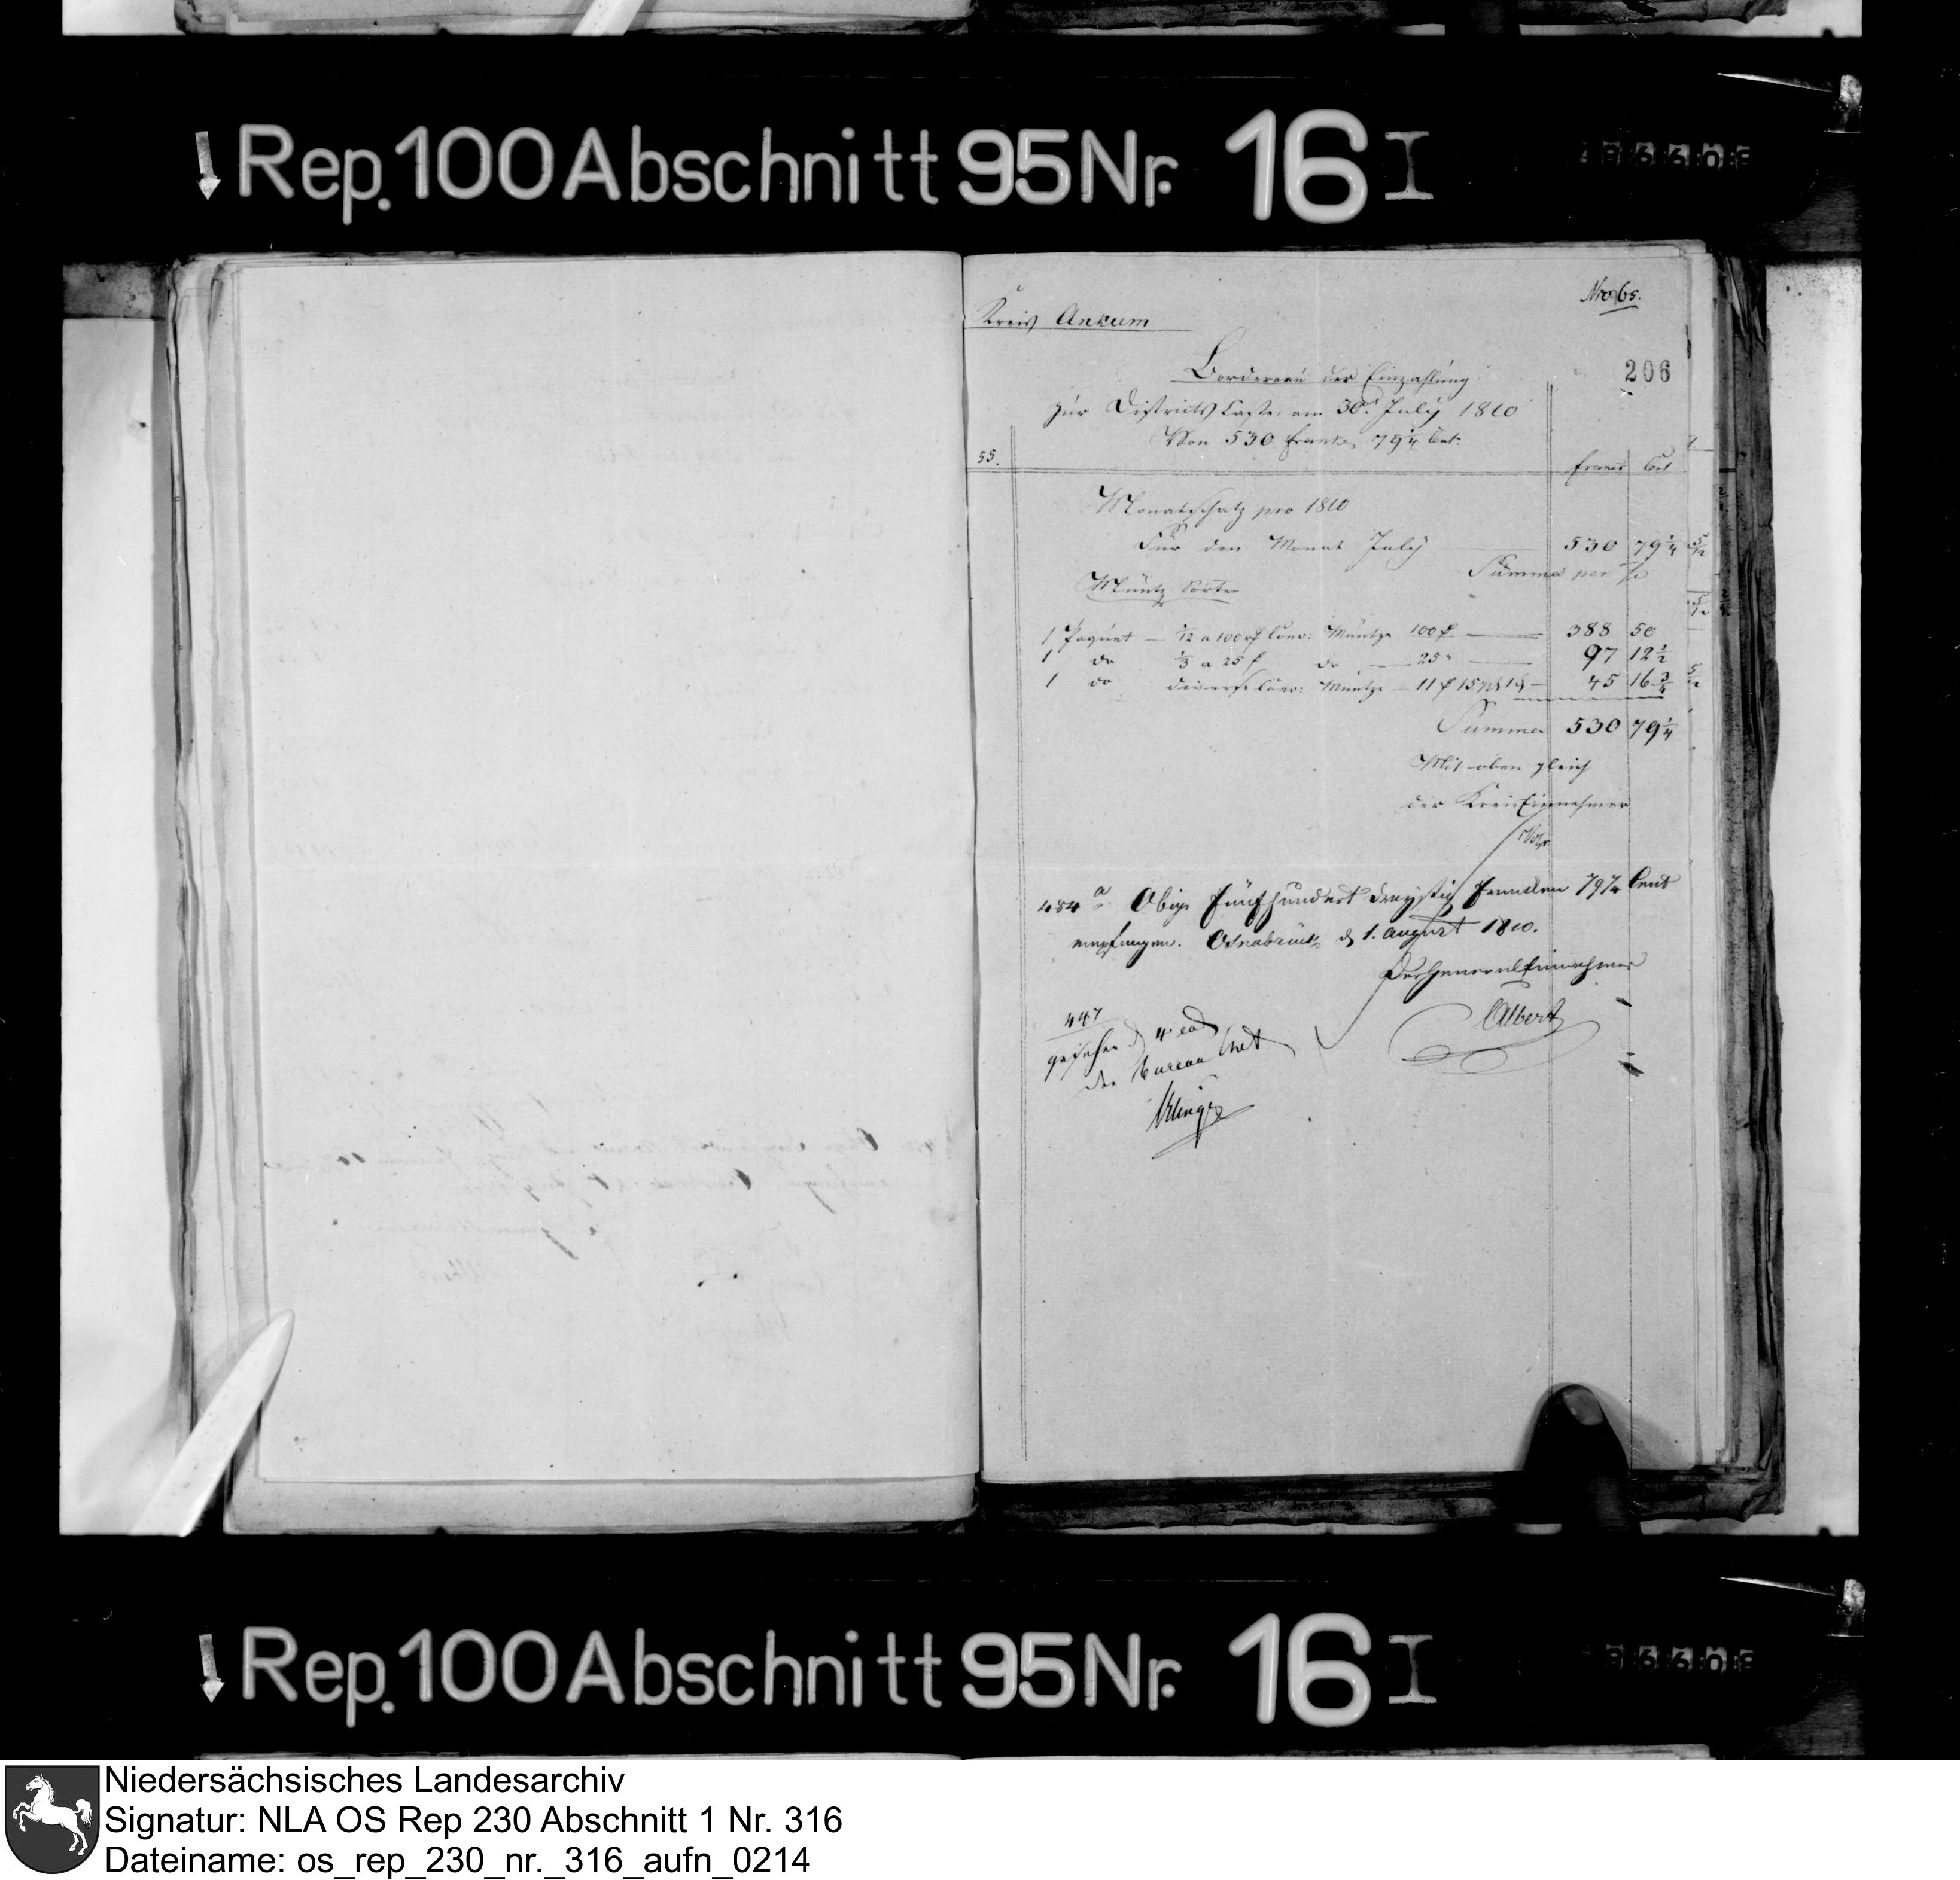 Rep. 100 Abschnitt 95 Nr. 16 I
Nro 65.
Kreis Ankum
206
Bordereau der Einzahlung
zur Districts Casse, am 30t. July 1810
Von 530 Franks 79 1/4 Cent.
55.
Francs Cent
Monatschatz pro 1810
Für den Monat July 530 79 1/4
Summa per se
Müntz Sorten
1 Paquet 1/12 a 100 rf Conv: Müntze 100 f 388 50
1 do 1/3 a 25 f do 25 " 97 12 1/2
1 do diverse Conv: Müntze 11 f 15 45 16 3/4
Summa 530 79 1/4
Mit oben gleich
der Kreis Einnehmer
484 a. Obige Fünfhundert dreyssig Francken 79 1/4 Cent
empfangen. Osnabrück d 1. August 1810.
Der General Einnehmer
Albert
447
gesehen
der Bureau Chef
Rep. 100 Abschnitt 95 Nr. 16 I
Niedersächsisches Landesarchiv
Signatur: NLA OS Rep 230 Abschnitt 1 Nr. 316
Dateiname: os_rep_230_nr._316_aufn_0214